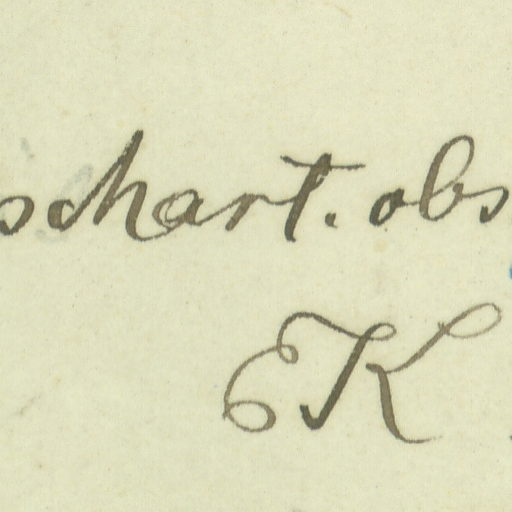 schart. obs
EK